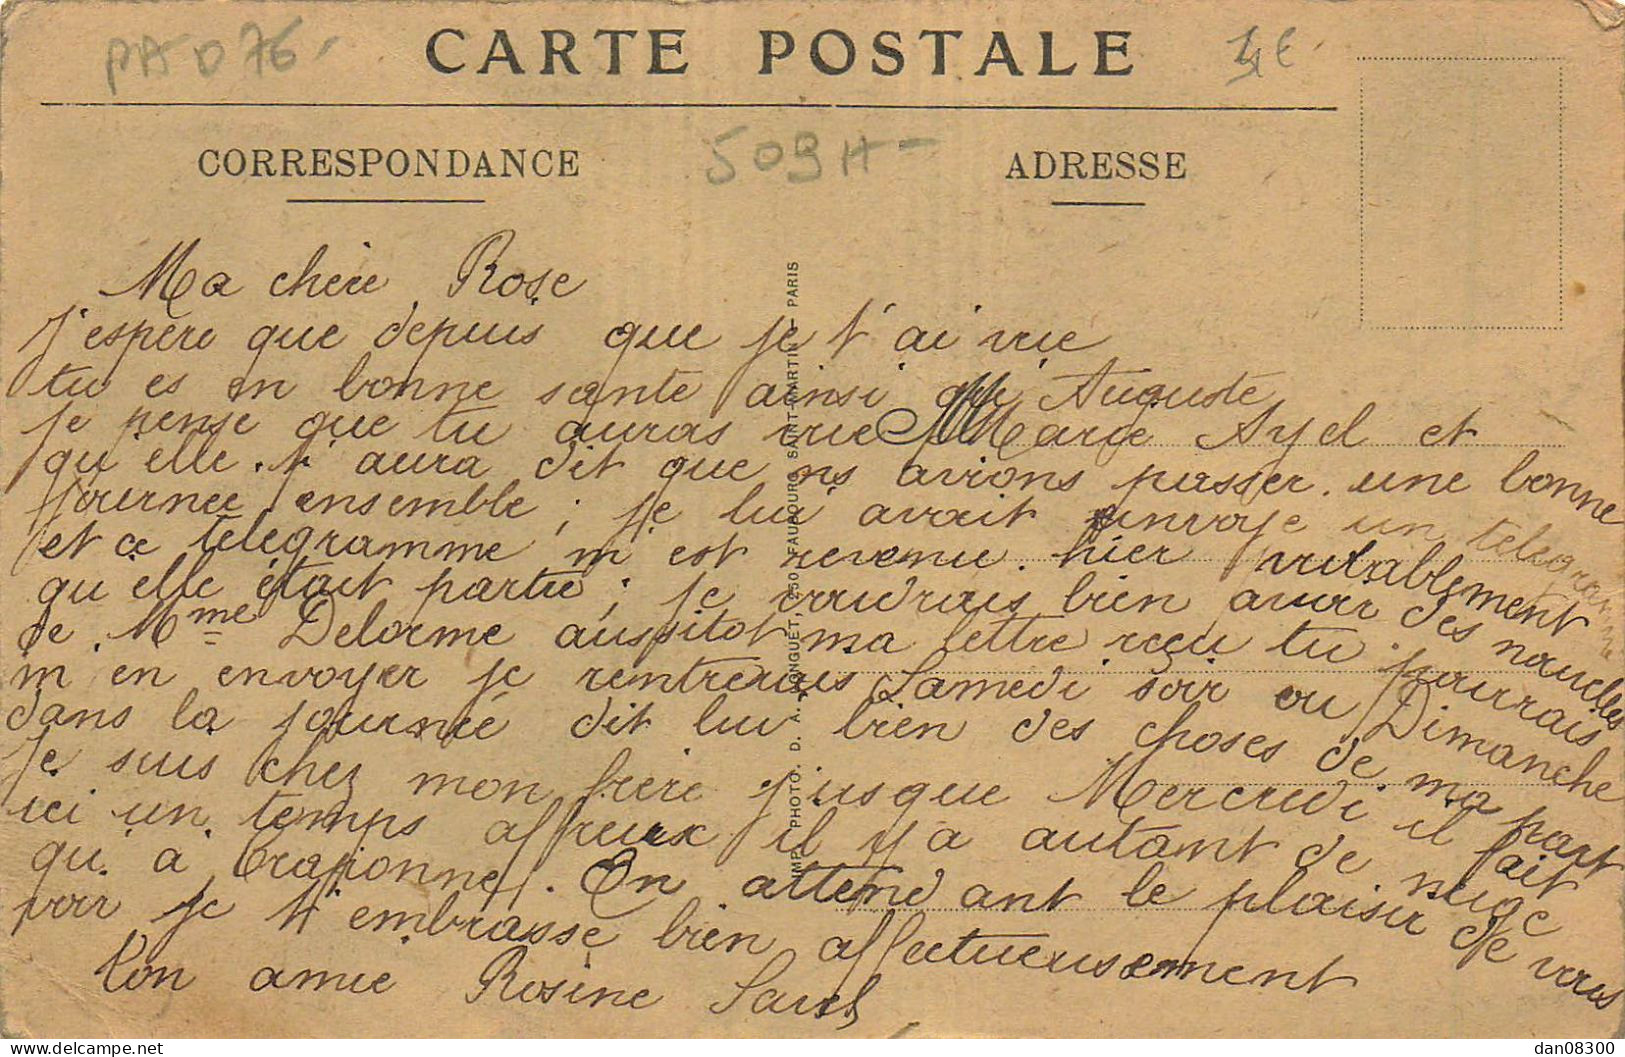 CARTE POSTALE
CORRESPONDANCE
509H-
ADRESSE
Ma chère Rose
J'espère que depuis que je t'ai vue
tu es en bonne santé ainsi que Auguste
je pense que tu auras vue Marie Ayel et
qu'elle t'aura dit que ns avions passer une bonne
journee ensemble; je lui avait envoye un telegramme
et ce telegramme m'est revenu hier probablement
qu'elle était partie; je voudrais bien avoir des nouvelles
de Mme Delorme aussitot ma lettre reçu tu pourrais
m'en envoyer je rentrerais Samedi soir ou Dimanche
dans la journeé dit lui bien des choses de ma part
Je suis chez mon frère jusque Mercredi il fait
ici un temps affreux il y a autant de neige
qu'a Craponne. En attendant le plaisir de vous
voir je t'embrasse bien affectueusement
Ton amie Rosine
IMP. PHOTO. D. A. LONGUET, 250 FAUBOURG SAINT-MARTIN - PARIS
dan08300